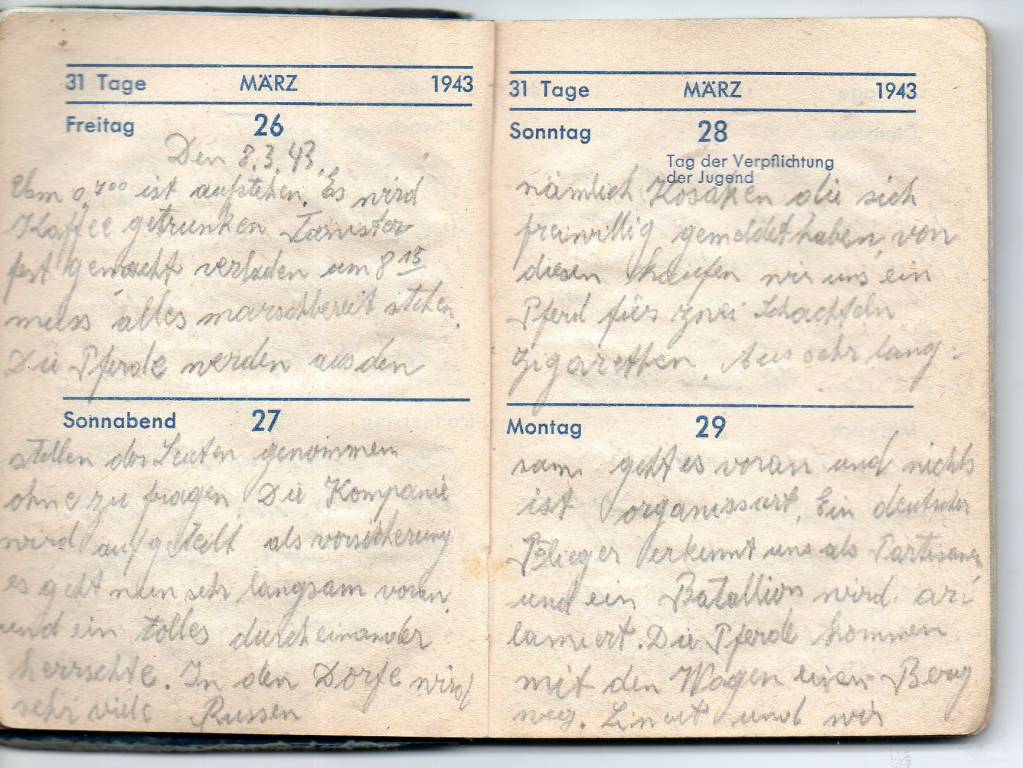 31 Tage MÄRZ 1943
Freitag 26
Den 8.3.43.
Um 0,400 ist aufstehen. Es wird
Kaffee getrunken Tornister
fest gemacht verladen um 8 15
muss alles marschbereit stehen.
Die Pferde werden aus den
Sonnabend 27
stellen der Leuten genommen
ohne zu fragen. Die Kompanie
wird aufgeteilt als vorsicherung
es geht nun sehr langsam voran
und ein tolles durcheinander
herrschte. In den Dorfe wird
sehr viele Russen
31 Tage MÄRZ 1943
Sonntag 28
Tag der Verpflichtung
der Jugend
nämlich Kosaken die sich
freiwillig gemeldet haben von
diesen kaufen wir uns ein
Pferd fürs zwei Schachteln
Zigaretten. Aus sehr lang:
Montag 29
sam geht es voran und nichts
ist organissiert. Ein deutscher
Flieger erkennt uns als Partisanen
und ein Batallion wird
lamiert. Die Pferde kommen
mit den Wagen einen Berg
weg. und wir